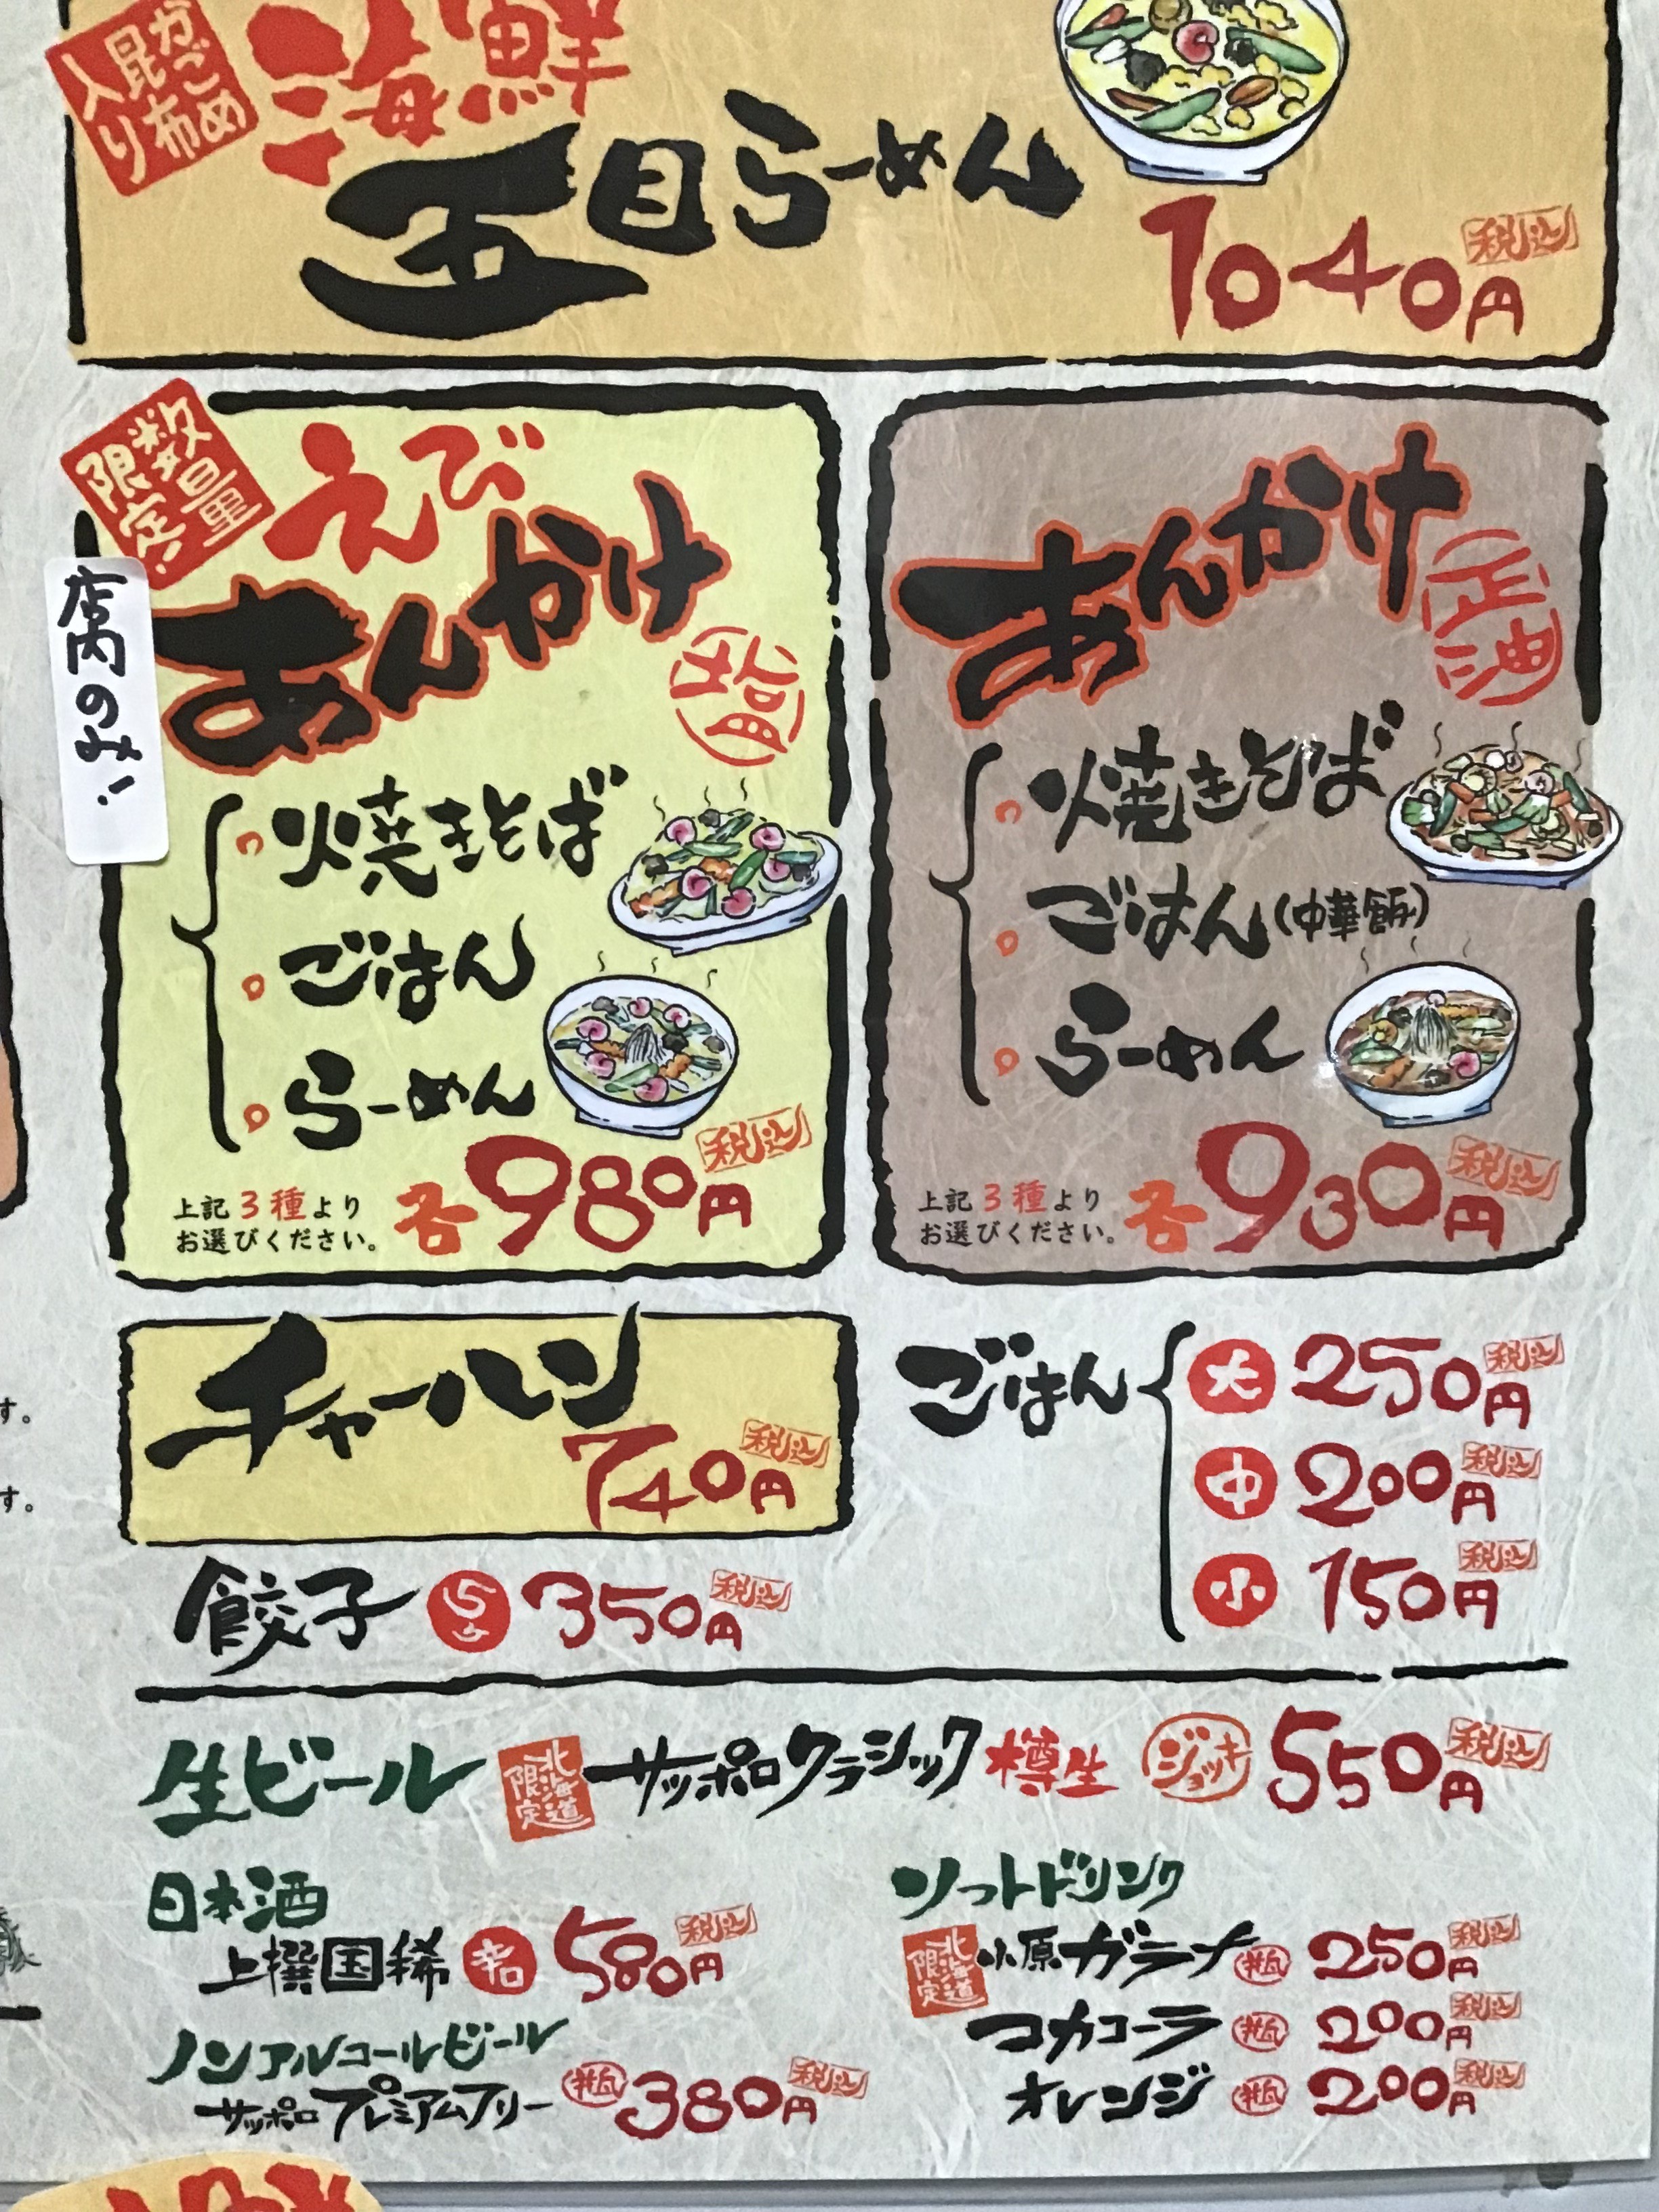 がごめ
昆布
入り
海鮮
五目らーめん
1040円
税込
数量
限定!
店内のみ!
えび
あんかけ
塩
焼きそば
ごはん
らーめん
上記3種より
お選びください。
各980円
税込
あんかけ
正油
焼きそば
ごはん(中華飯)
らーめん
上記3種より
お選びください。
各930円
税込
チャーハン
740円
税込
餃子 5コ 350円
税込
ごはん
大 250円 税込
中 200円 税込
小 150円 税込
生ビール 北海道限定 サッポロクラシック 樽生 ジョッキ 550円 税込
日本酒
上撰国稀 辛口 580円 税込
ノンアルコールビール
サッポロプレミアムフリー 瓶 380円 税込
ソフトドリンク
北海道限定 小原ガラナ 瓶 250円 税込
コカコーラ 瓶 200円 税込
オレンジ 瓶 200円 税込
す。
す。